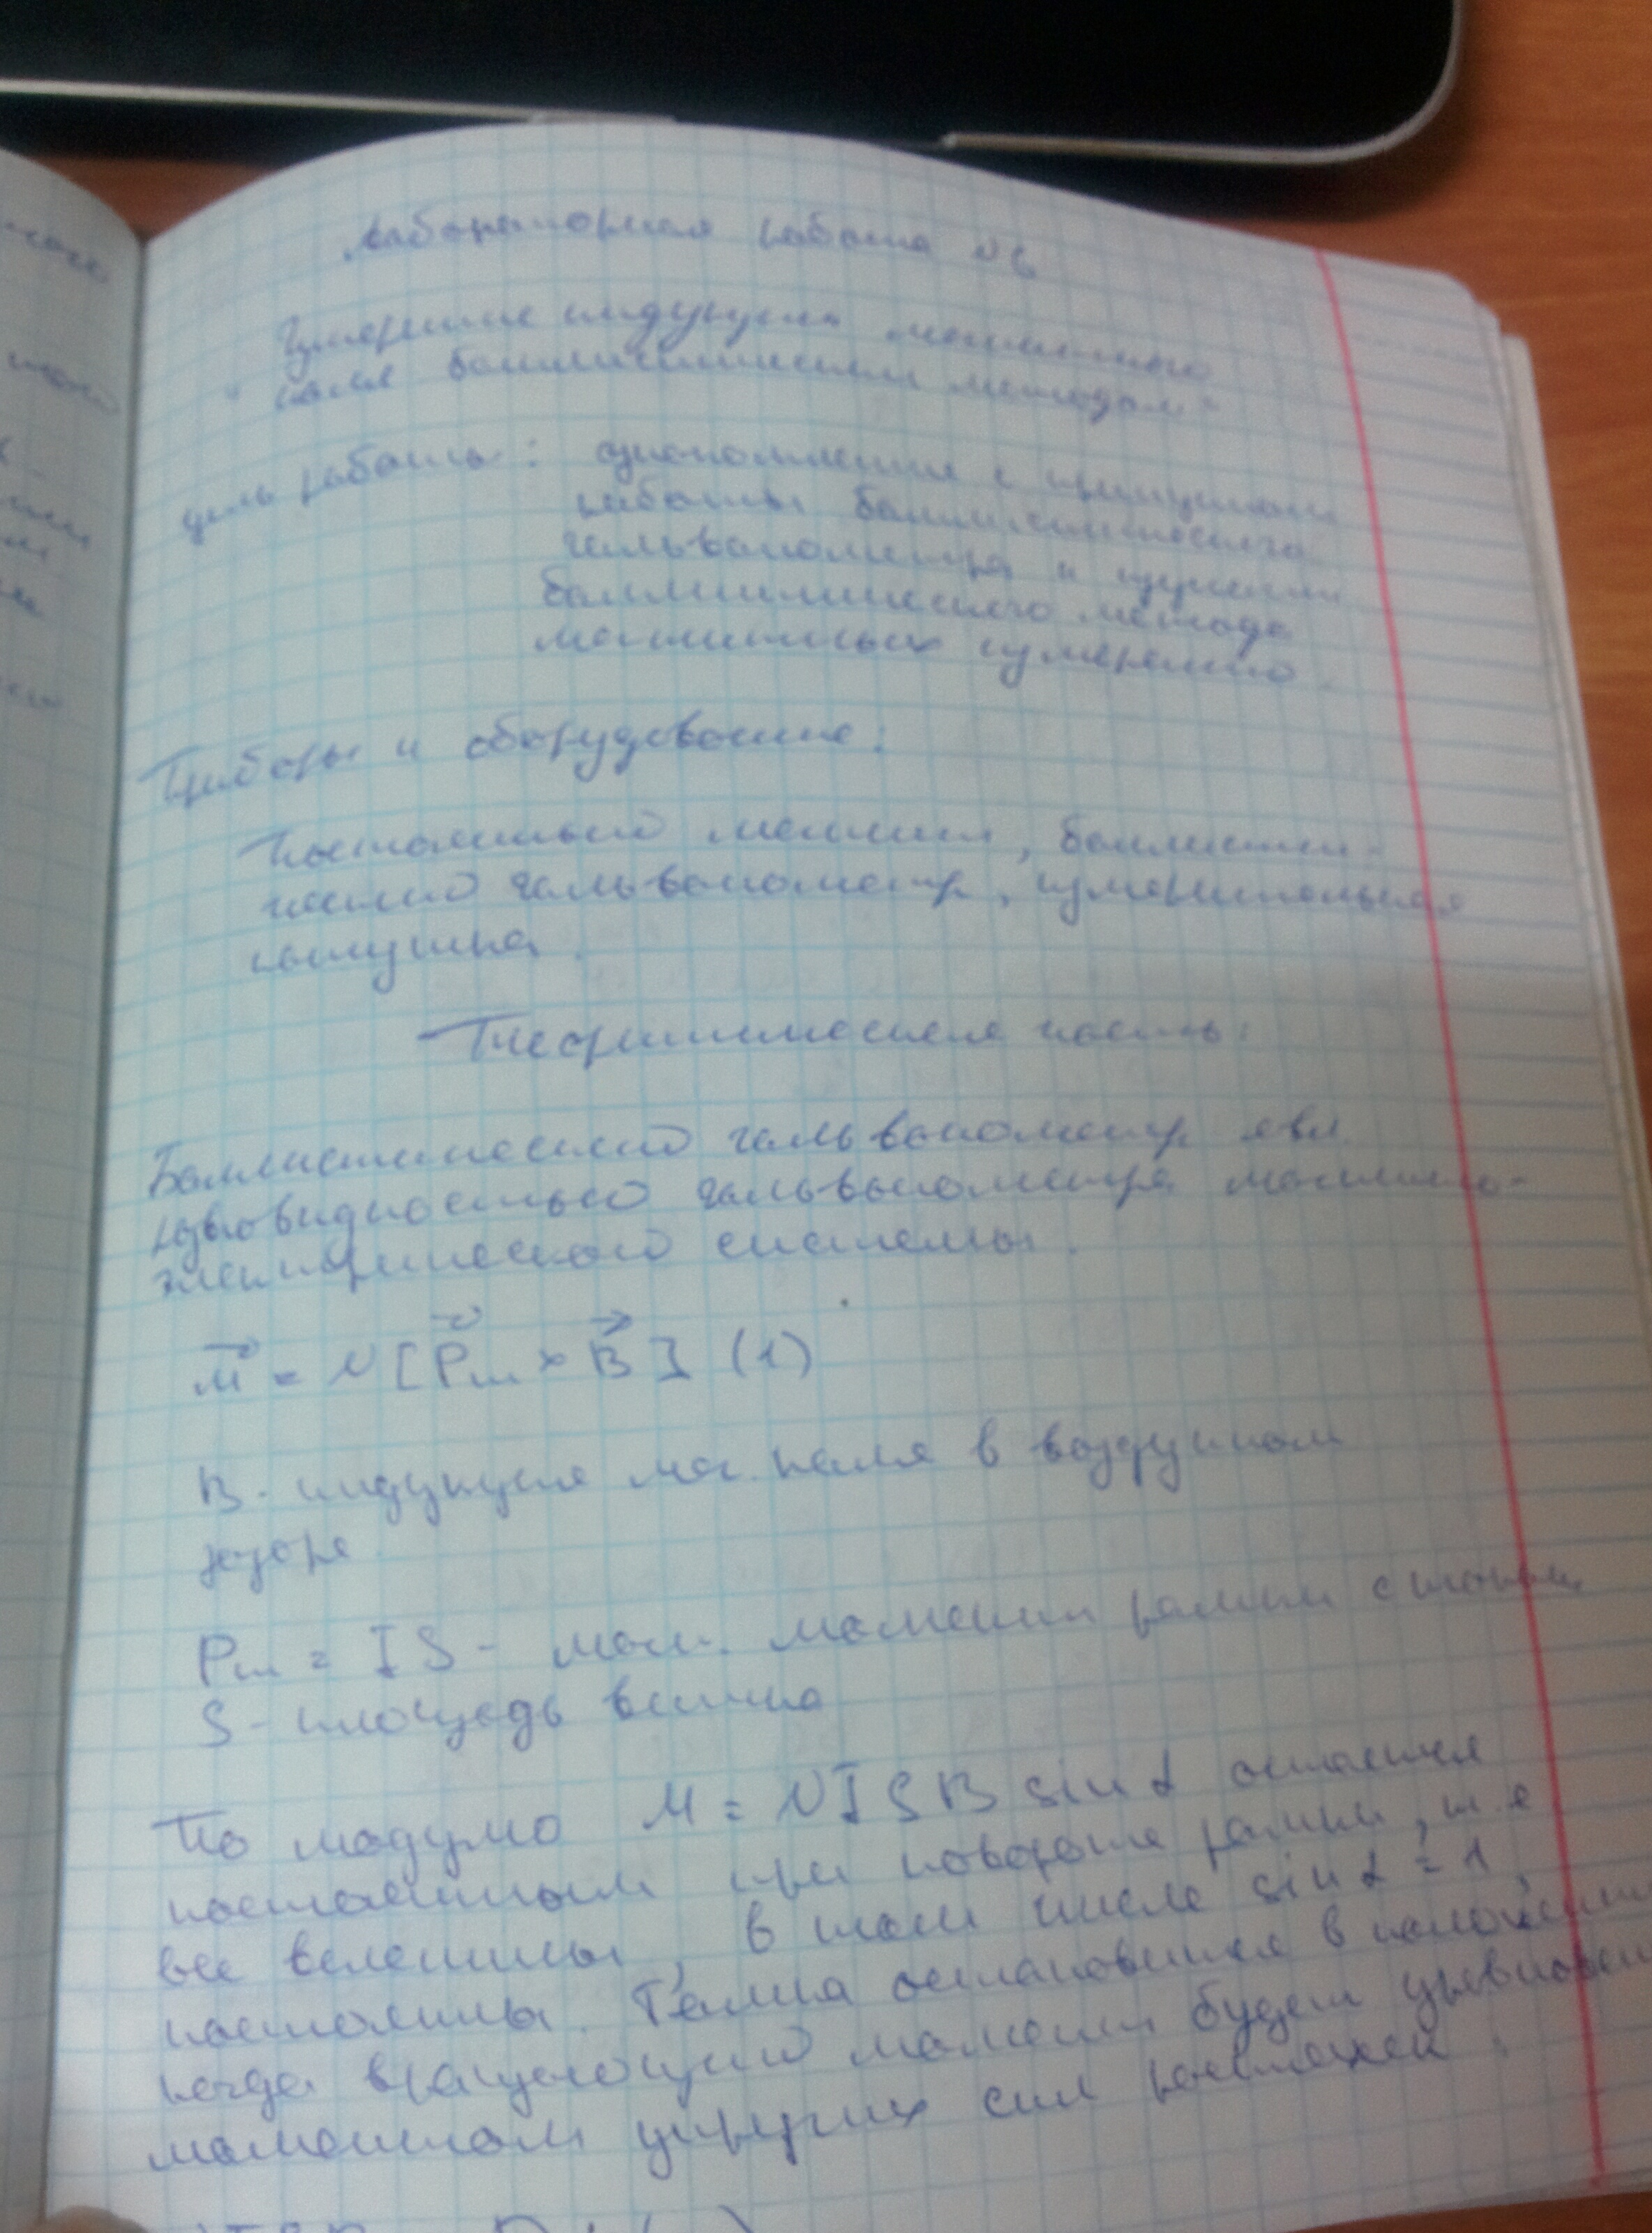 Лабораторная работа №6
Измерение индукции магнитного
"поля баллистическим методом"
Цель работы: ознакомление с принципом
работы баллистического
гальванометра и изучение
баллистического метода
магнитных измерений.
Приборы и оборудование:
Постоянный магнит, баллисти-
ческий гальванометр, измерительная
катушка.
Теоритическая часть:
Баллистический гальванометр явл.
разновидностью гальванометра магнито-
электрического системы.
M = N [Pm × B] (1)
B - индукция маг. поля в воздушном
зазоре
Pm = IS - маг. момент рамки с током
S - площадь витка
По модулю M = NISB sin α остается
постоянным при повороте рамки, т.е
все величины, в том числе sin α = 1,
постоянны. Рамка остановится в положении
когда вращающий момент будет
моментом упругих сил растяжек